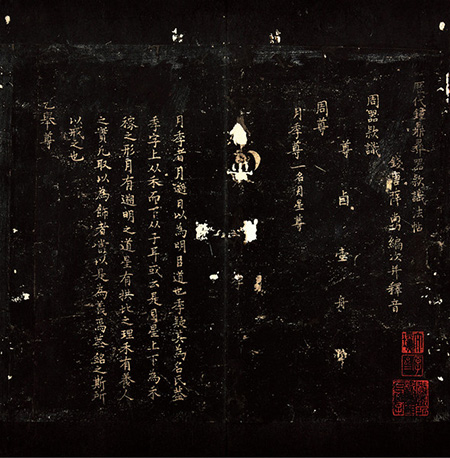 歷代鐘鼎彝器款識法帖
錢唐薛尚功編次并釋音
周器款識
尊 卣 壺 舟
周尊
月季尊一名月星尊
月季者月遡日以為明日道也季疑其為名氏
季字上从禾而下从子耳或云是月星上下為禾
稼之形月有遡明之道星有拱北之理禾有養人
之實凡取以為飾者當以是為義焉然銘之斯所
以戒之也
乙舉尊